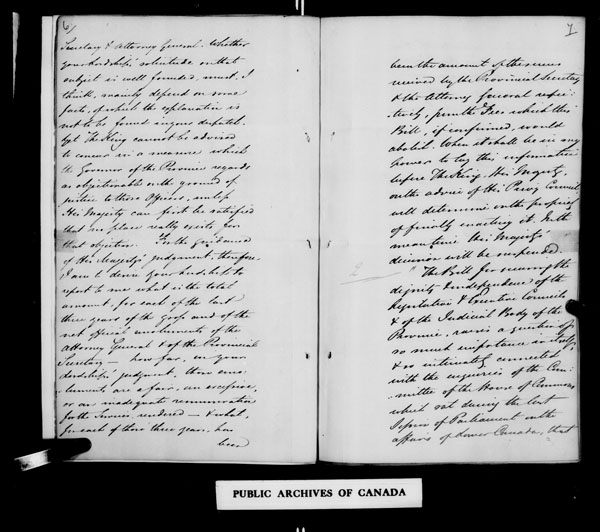 6/
Secretary & Attorney General. Whether
your Lordship's solicitude on that
subject is well founded, must, I
think, mainly depend on some
facts, of which the explanation is
not to be found in your despatch.
Yet The King cannot be advised
to concur in a measure which
the Governor of the Province regards
as objectionable on the ground of
justice to those Officers, unless
His Majesty can first be satisfied
that no place really exists for
that objection. For the guidance
of His Majesty's judgment, therefore,
I am to desire your Lordship to
report to me what is the total
amount, for each of the last
three years of the gross and of the
net official emoluments of the
Attorney General & of the Provincial
Secretary — how far, in your
Lordship's judgment, those emo-
luments are a fair, an excessive,
or an inadequate remuneration
for the Services rendered — & what,
for each of those three years, has
been
7
been the amount of the sums
received by the Provincial Secretary
& the Attorney General respec-
tively, from the Fees which this
Bill, if confirmed, would
abolish. When it shall be in my
power to lay this information
before The King, His Majesty,
on the advice of His Privy Council
will determine on the propriety
of finally enacting it. In the
mean time His Majesty's
decision will be suspended.
"The Bill for securing the
dignity & independence of the
Legislative & Executive Councils
& of the Judicial Body of the
Province, raises a question of
so much importance in itself,
& so intimately connected
with the enquiries of the Com-
mittee of the House of Commons
which sat during the last
Session of Parliament on the
affairs of Lower Canada, that
PUBLIC ARCHIVES OF CANADA